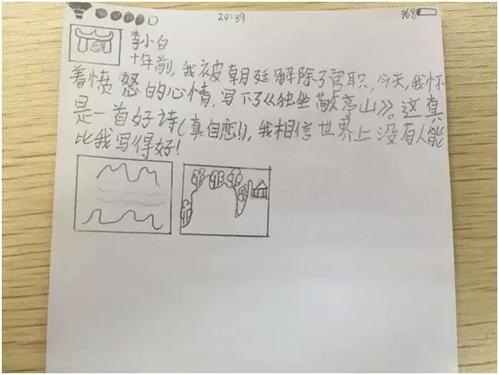 20:59
李小白
十年前,我被朝廷解除了官职,今天,我怀
着愤怒的心情,写下了《独坐敬亭山》。这真
是一首好诗(真自恋!),我相信世界上没有人能
比我写得好!